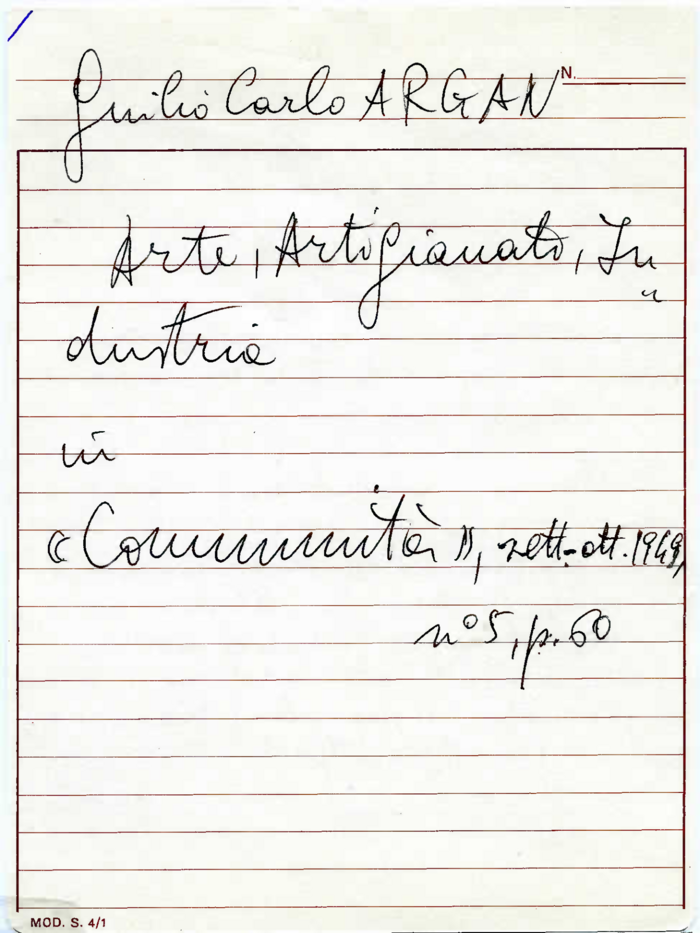 Giulio Carlo ARGAN
N.
Arte, Artigianato, In
dustria
in
«Comunità», sett-ott. 1949,
n° 5, p. 60
MOD. S. 4/1